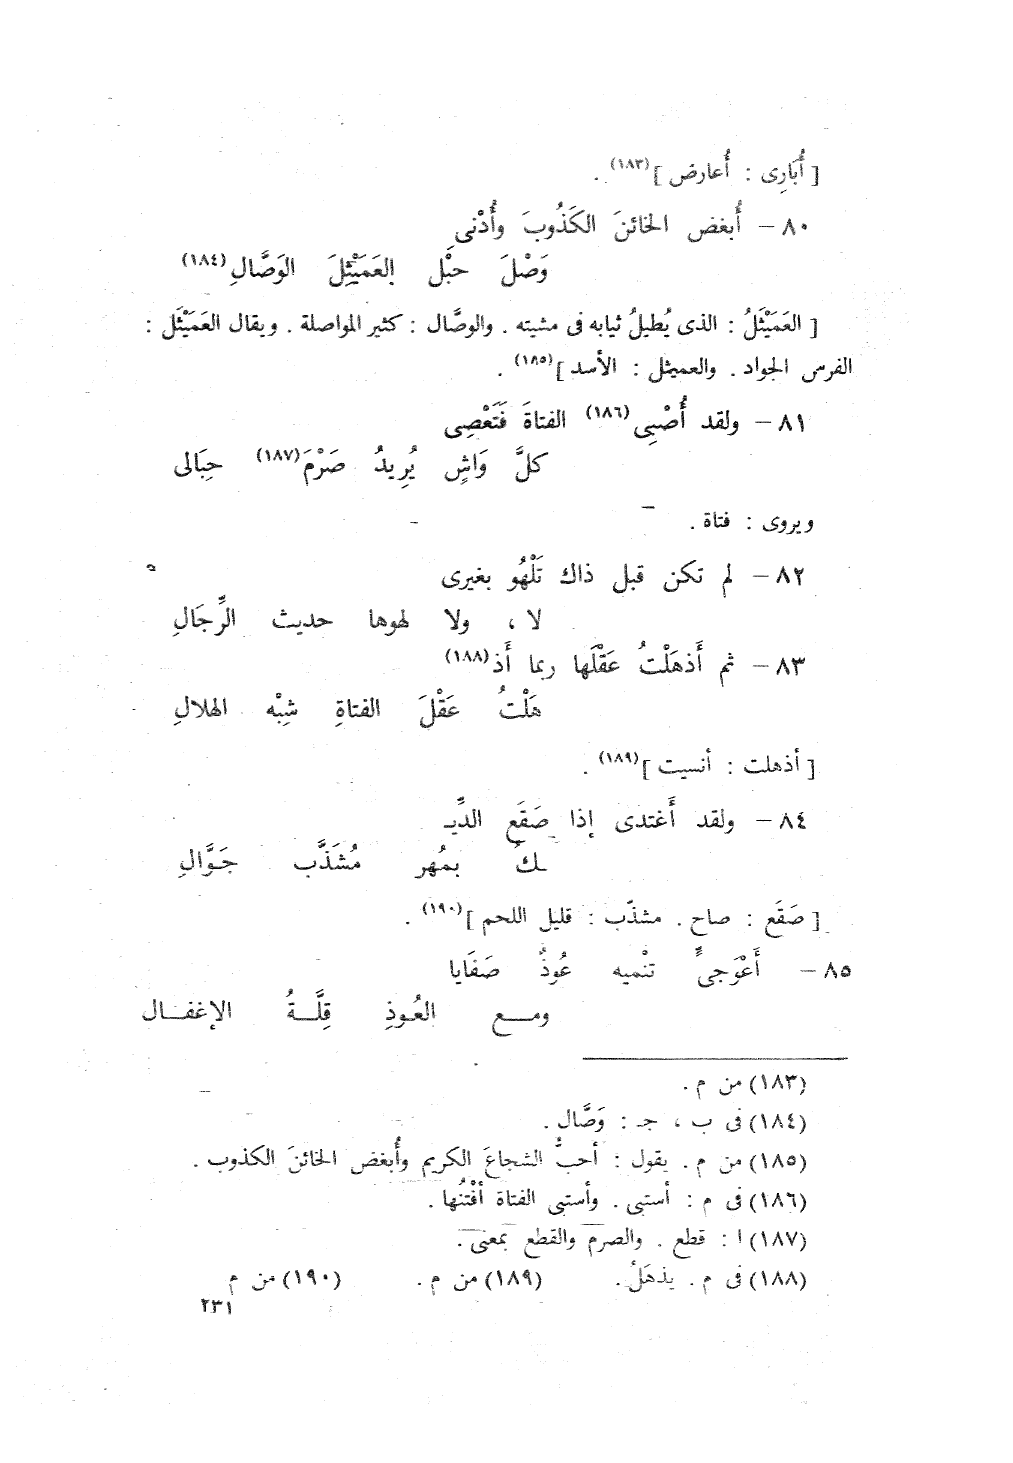 [ أُبَارِى : أُعارض ](١٨٣) .
٨٠ – أُبغض الخائنَ الكَذُوبَ وأُدْنىِ
وَصْلَ حبْل العَمَيْثِلَ الوَصَّالِ(١٨٤)
[ العَمَيْثَلُ : الذى يُطيلُ ثيابه فى مشيته . والوصَّال : كثير المواصلة . ويقال العَمَيْثَل :
الفرس الجواد . والعميثل : الأسد ](١٨٥) .
٨١ – ولقد أُصْبِى(١٨٦) الفتاةَ فَتَعْصِى
كلَّ وَاشٍ يُرِيدُ صَرْمَ(١٨٧) حِبَالى
ويروى : فتاة .
٨٢ – لم تكن قبل ذاك تَلْهُو بغيرى
لا ، ولا لهوها حديث الرِّجَالِ
٨٣ – ثم أَذهَلْتُ عَقْلَها ربما أَذ(١٨٨)
هَلْتُ عَقْلَ الفتاةِ شِبْه الهلالِ
[ أذهلت : أنسيت ](١٨٩) .
٨٤ – ولقد أَغتدى إذا صَقَع الدِّيـ
ـكُ بمُهر مُشَذَّب جَوَّالِ
[ صَقَع : صاح . مشذّب : قليل اللحم ](١٩٠) .
٨٥ – أَعْوَجىٍّ تنْميه عُوذٌ صَفَايا
ومـــع العُوذِ قِلَّــةُ الإغفــال
(١٨٣) من م .
(١٨٤) فى ب ، جـ : وَصَّال .
(١٨٥) من م . يقول : أحبُّ الشجاعَ الكريم وأُبغض الخائنَ الكذوب .
(١٨٦) فى م : أستبى . وأستبى الفتاة أفْتنُها .
(١٨٧) ا : قطع . والصرم والقطع بمعنى .
(١٨٨) فى م . يذهَلُ . (١٨٩) من م . (١٩٠) من م
٢٣١